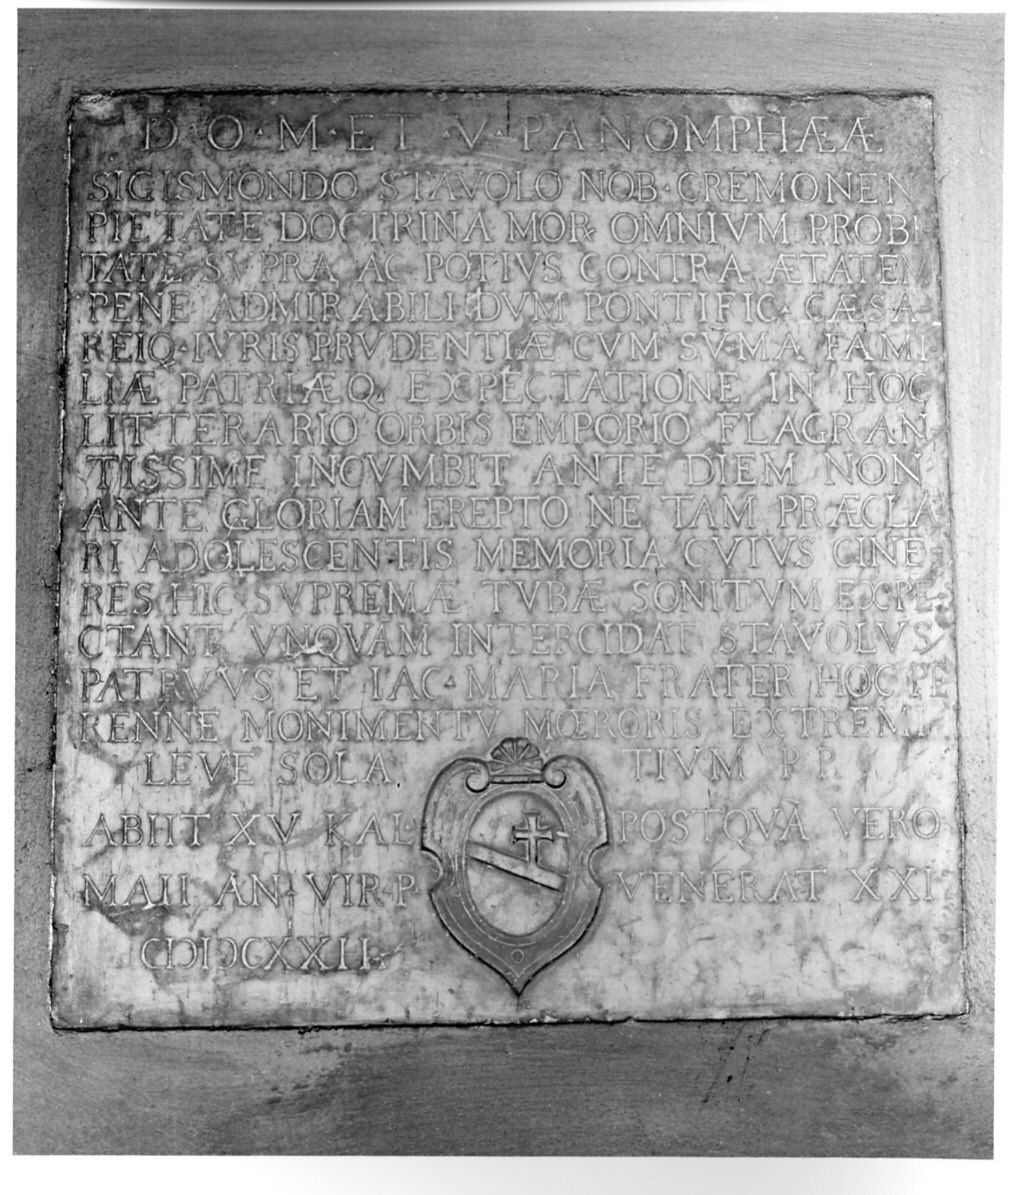 D·O·M·ET·V·PANOMPHÆÆ
SIGISMONDO STAVOLO NOB·CREMONEN
PIETATE DOCTRINA MOR· OMNIVM PROBI
TATE SVPRA AC POTIVS CONTRA ÆTATEM
PENE ADMIRABILI·DVM PONTIFIC· CÆSA
REIQ·IVRIS PRVDENTIÆ CVM SVMA FAMI
LIÆ PATRIÆQ· EXPECTATIONE IN HOC
LITTERARIO ORBIS EMPORIO FLAGRAN
TISSIME INCVMBIT ANTE DIEM NON
ANTE GLORIAM EREPTO NE TAM PRÆCLA
RI ADOLESCENTIS MEMORIA CVIVS CINE
RES HIC SVPREMÆ TVBÆ SONITVM EXPE
CTANT VNQVAM INTERCIDAT STAVOLVS
PATRVVS ET IAC·MARIA FRATER HOC PE
RENNE MONIMENTV MŒRORIS EXTREMI
LEVE SOLA TIVM P P
ABIIT XV KAL· POSTQVA VERO
MAII AN·VIR·P· VENERAT XXI·
CIƆIƆCXXII·